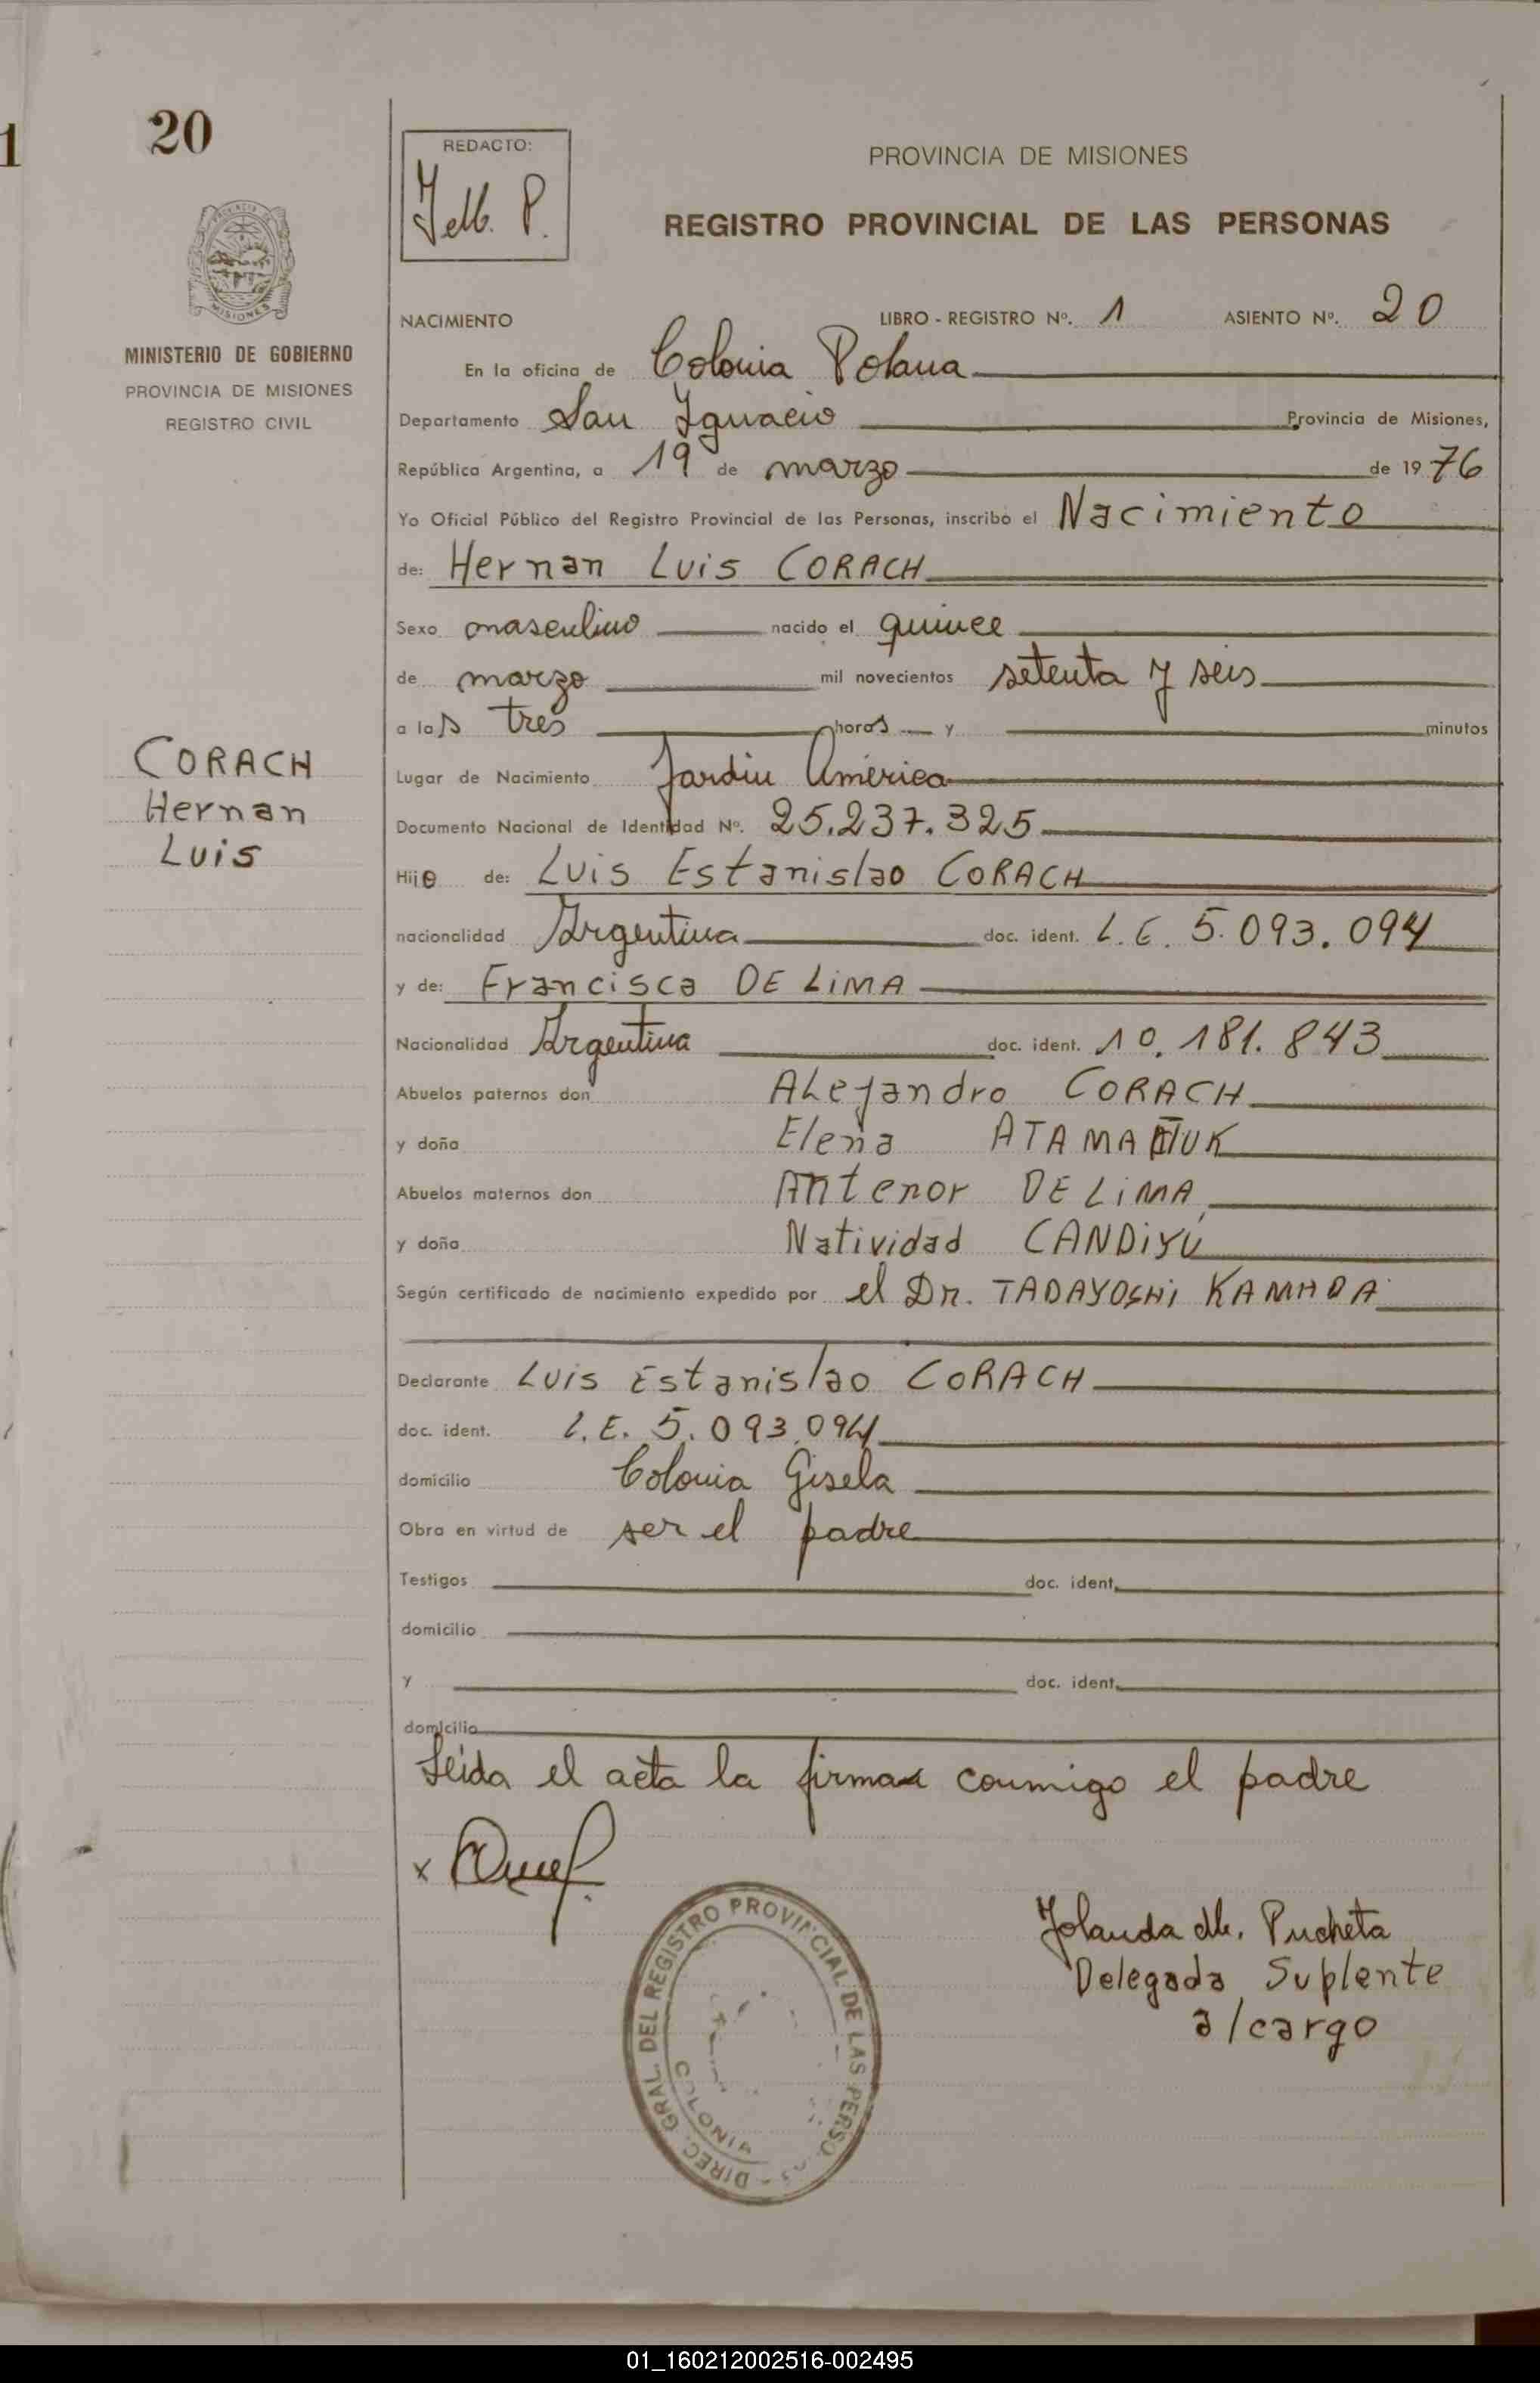 1
20
MINISTERIO DE GOBIERNO
PROVINCIA DE MISIONES
REGISTRO CIVIL
CORACH
Hernan
Luis
REDACTO:
P.
PROVINCIA DE MISIONES
REGISTRO PROVINCIAL DE LAS PERSONAS
NACIMIENTO LIBRO - REGISTRO Nº. 1 ASIENTO Nº. 20
En la oficina de Colonia Polana
Departamento San Ygnacio Provincia de Misiones,
República Argentina, a 19 de marzo de 1976
Yo Oficial Público del Registro Provincial de las Personas, inscribo el Nacimiento
de: Hernan Luis CORACH
Sexo masculino nacido el quince
de marzo mil novecientos setenta y seis
a las tres horas y minutos
Lugar de Nacimiento Jardin América
Documento Nacional de Identidad Nº. 25.237.325
Hijo de: Luis Estanislao CORACH
nacionalidad Argentina doc. ident. L.E. 5.093.094
y de: Francisca DE LIMA
Nacionalidad Argentina doc. ident. 10.181.843
Abuelos paternos don Alejandro CORACH
y doña Elena
Abuelos maternos don Antenor DE LIMA
y doña Natividad CANDIYÚ
Según certificado de nacimiento expedido por el Dr. TADAYOSHI
Declarante Luis Estanislao CORACH
doc. ident. L.E. 5.093.094
domicilio Colonia Gisela
Obra en virtud de ser el padre
Testigos doc. ident.
domicilio
y doc. ident.
domicilio
Leída el acta la firma conmigo el padre
x
DIREC. GRAL. DEL REGISTRO PROVINCIAL DE LAS
COLONIA
Yolanda M. Pucheta
Delegada Suplente
a/cargo
01_160212002516-002495